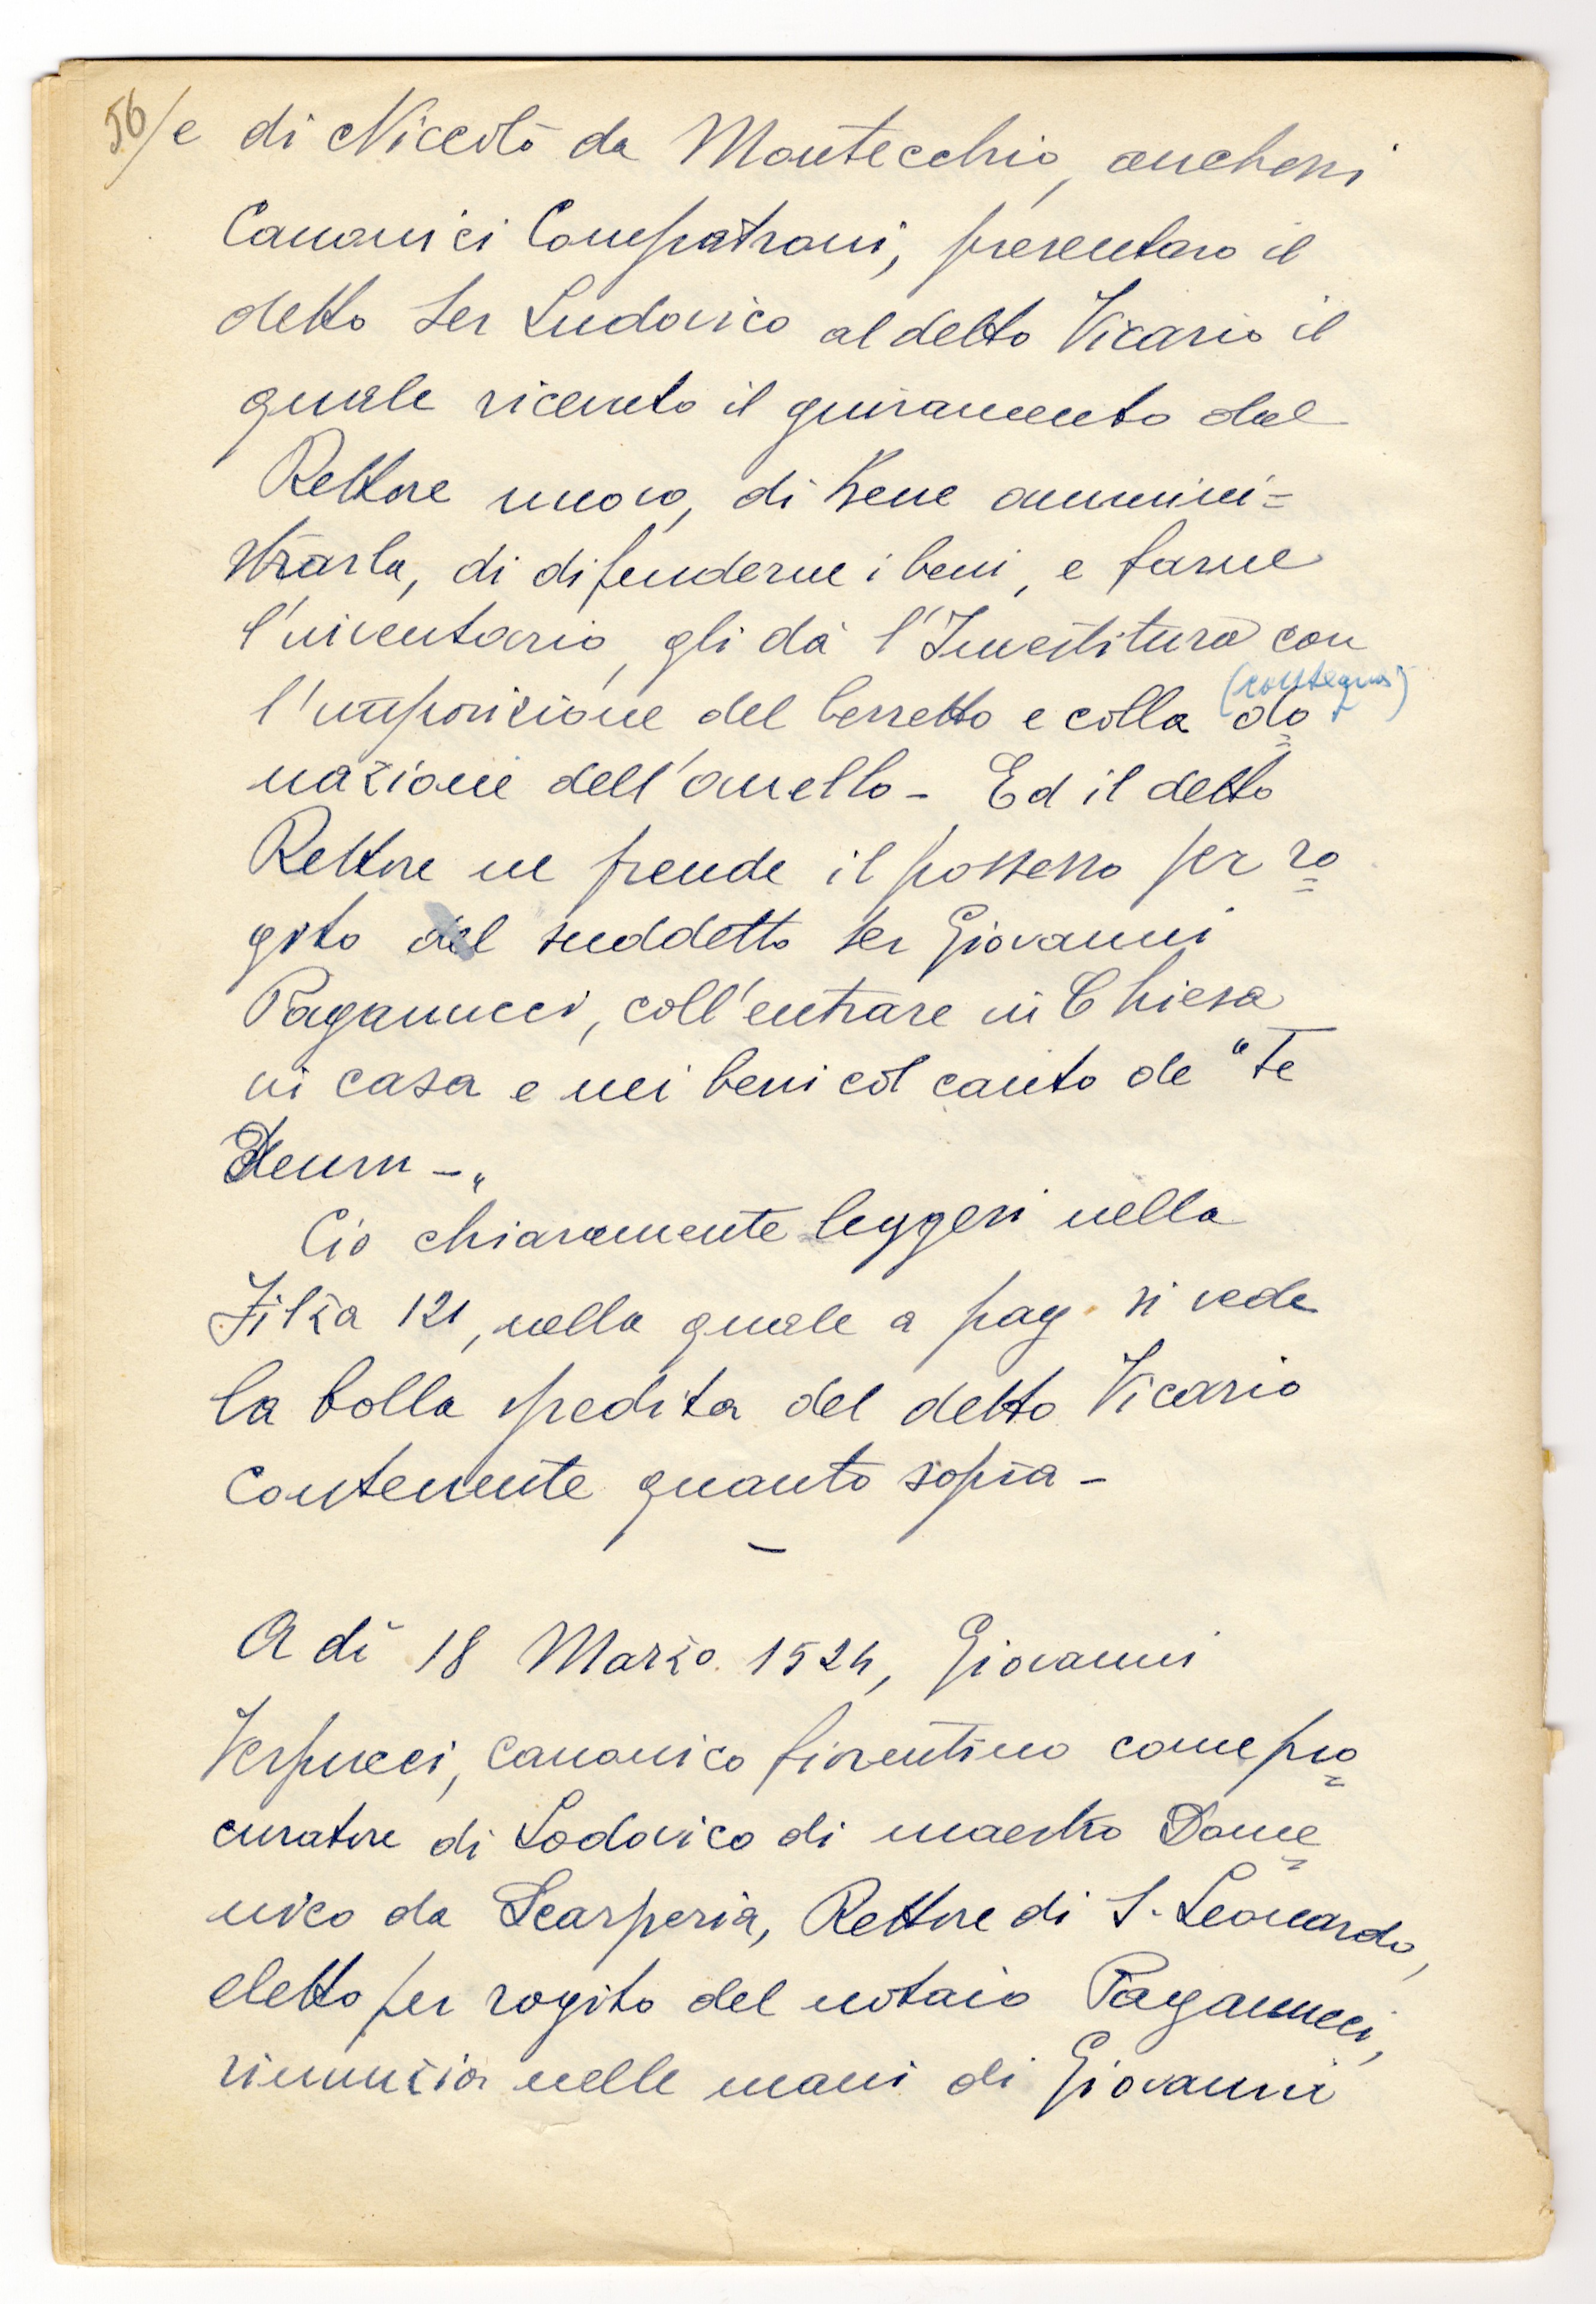 56/ e di Niccolò da Montecchio, anchessi
Canonici Compatroni, presentano il
detto Ser Ludovico al detto Vicario il
quale ricevuto il guiramento dal
Rettore nuovo, di bene ammini=
strarla, di difenderne i beni, e farne
l'inventario, gli dà l'Investitura con
(consegna)
l'imposizione del berretto e colla do=
nazione dell'anello - Ed il detto
Rettore ne prende il possesso per ro=
gito del suddetto ser Giovanni
Paganucci, coll'entrare in Chiesa
in casa e nei beni col canto de "Te
Deum -"
Ciò chiaramente leggesi nella
Filza 121, nella quale a pag. si vede
la bolla spedita del detto Vicario
contenente quanto sopra -
-
A dì 18 Marzo 1524, Giovanni
Vespucci, canonico fiorentino come pro=
curatore di Lodovico di maestro Dome=
nico da Scarperia, Rettore di S. Leonardo,
eletto per rogito del notaio Paganucci,
rinunzia nelle mani di Giovanni